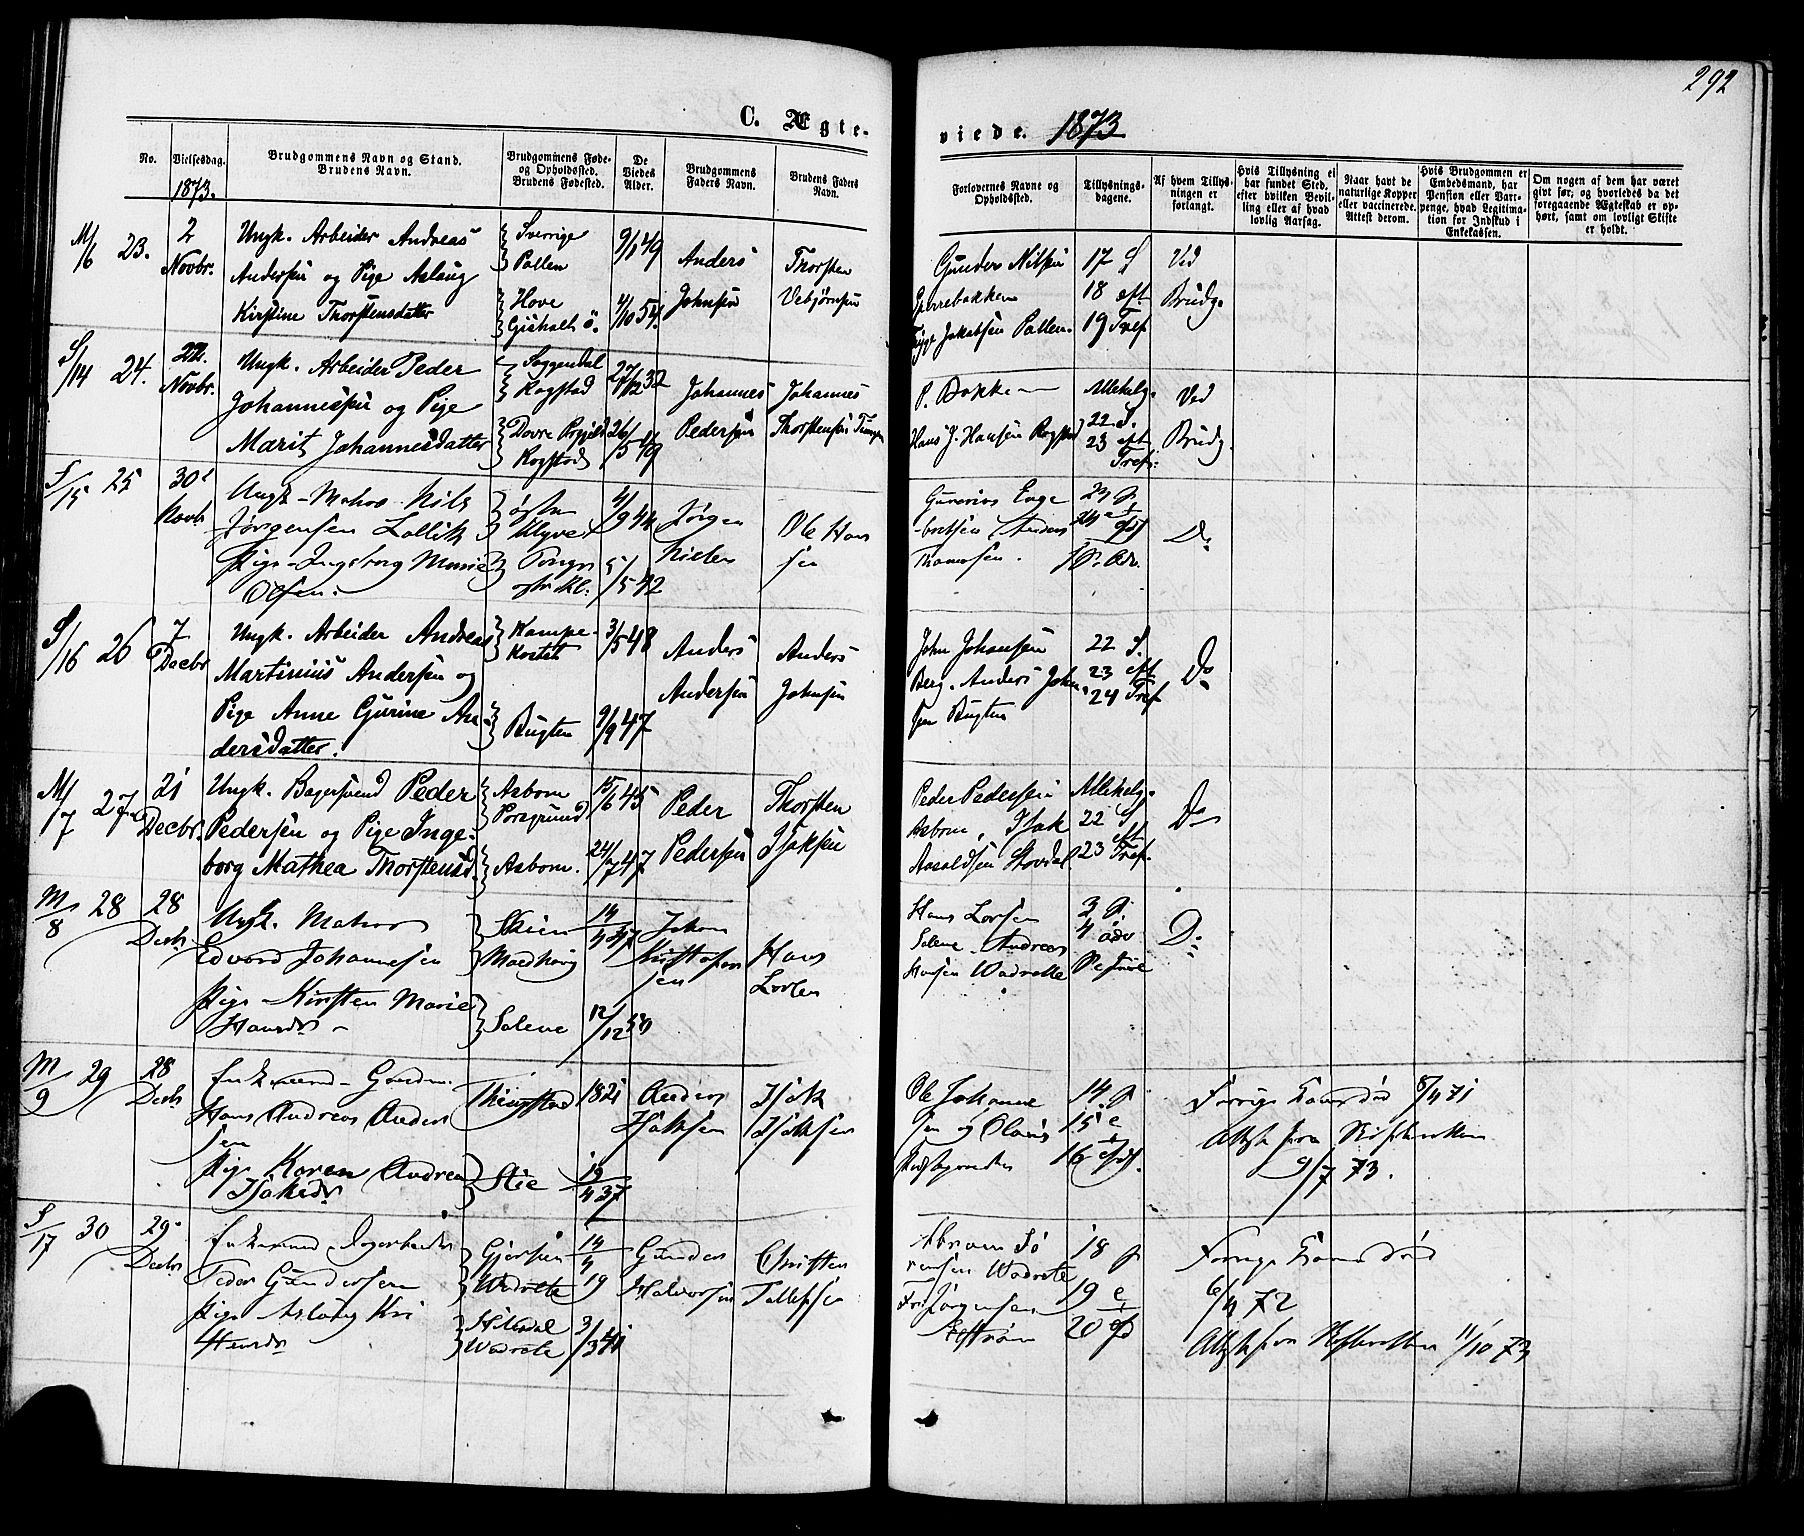 292
C. Ægte-
viede. 1873
No.
Vielsesdag.
1873.
Brudgommens Navn og Stand.
Brudens Navn.
Brudgommens Føde-
og Opholdssted.
Brudens Fødested.
De
Viedes
Alder.
Brudgommens
Faders Navn.
Brudens Faders
Navn.
Forlovernes Navne og
Opholdssted.
Tillysnings-
dagene.
Af hvem Tillys-
ningen er
forlangt.
Hvis Tillysning ei
har fundet Sted,
efter hvilken Bevil-
ling eller af hvad
lovlig Aarsag.
Naar havt de
naturlige Kopper
eller vaccinerede.
Attest derom.
Hvis Brudgommen er
Embedsmand, har
Pension eller Vart-
penge, hvad Legitima-
tion for Indskud i
Enkekassen.
Om nogen af dem har været
givt før, og hvorledes da det
foregaaende Ægteskab er op-
hørt, samt om lovligt Skifte
er holdt.
M/6 23.
2
Novbr.
Ungk. Arbeider Andreas
Andersen og Pige Aslaug
Kirstine Thorstensdatter
Sverrige
Pollen
Hove
Gisholt ö.
9/1 49
4/10 54.
Anders
Johnsen
Thorsten
Vebjørnsen
Gunder Nilsen
Jakobsen Pollen.
17 S
18 eft
19 Tref
Ved
Brudg.
S/14 24.
22.
Novbr.
Ungk. Arbeider Peder
Johannessen og Pige
Marit Johannesdatter
Soggendal
Rogstad
Dovre Prgjeld
Rogstad
27/12 32
26/5 49
Johannes
Pedersen
Johannes
Thorstensen
P. Bakken
Hans J. Hansen Rogstad
Allehelg.
22. S.
23 eft
Tref.
Ved
Brudg.
S/15 25
30
Novb
Ungk. Matros Nils
Jørgensen Lollik
Pige Ingeborg Marie
Olsen.
Østre
Klyve
4/9 44
5/5 42
Jørgen
Nielsen
Ole Han
sen
Gunerius Enge
-bretsen Anders
Thomesen.
23 p
Do
S/16 26
7
Decbr
Ungk. Arbeider Andreas
Martinius Andersen og
Pige Anne Gurine An-
dersdatter.
Kampe-
kastet
Bugten
3/5 48
9/9 47
Anders
Andersen
Anders
Johnsen
John Johansen
Berg. Anders John-
sen Bugten
22 S.
23 eft
24 Tref
Do
M/7 27
21
Decbr.
Ungk. Bagersvend Peder
Pedersen og Pige Inge-
borg Mathea Thorstensd.
Aasborn
Porsgrund
Aasborn.
15/6 45
24/7 47
Peder
Pedersen
Thorsten
Isaksen
Peder Pedersen
Isak
Aaraldsen Stovdal.
Allehelg.
22 S
eft
23 Tref.
Do
M/8 28
28
Decb
Ungk. Matros
Edvard Johannesen
Pige Kirsten Marie
Hansdr
Skien
Mælhøug
Solene
14/4 47
12/12 50
Johan
Kristofer
sen
Hans
Larsen
Hans Larsen
Solene. Andreas
Hansen Wadrette
3 p.
4 adv
Do
M/9 29
28
Decb
Enkemand Gaardm.
Hans Andreas Anders
sen
Pige Karen Andrea
Isaksdr
Stie
1821
19/4 37
Anders
Isaksen
Isak
Isaksen
Ole Johanne
sen og Olaus
14 p
15 e
16
Forrige Kone død 8/4 71
Attest fra Skifteretten
9/7 73.
S/17 30
29
Decb
Enkemand Dagarbeider
Peder Gundersen
Pige Aslaug Kri
stensdr
Gjerpen
Wadrette
Hitterdal
Wadrete
14/4 19
3/3 41
Gunder
Halvorsen
Christen
Tollefsen
Abraam Sø
rensen Wadrete
Jørgensen
18 p
19 e
20
Forrige Kone død
6/4 72
Attest fra Skifteretten 11/10 73